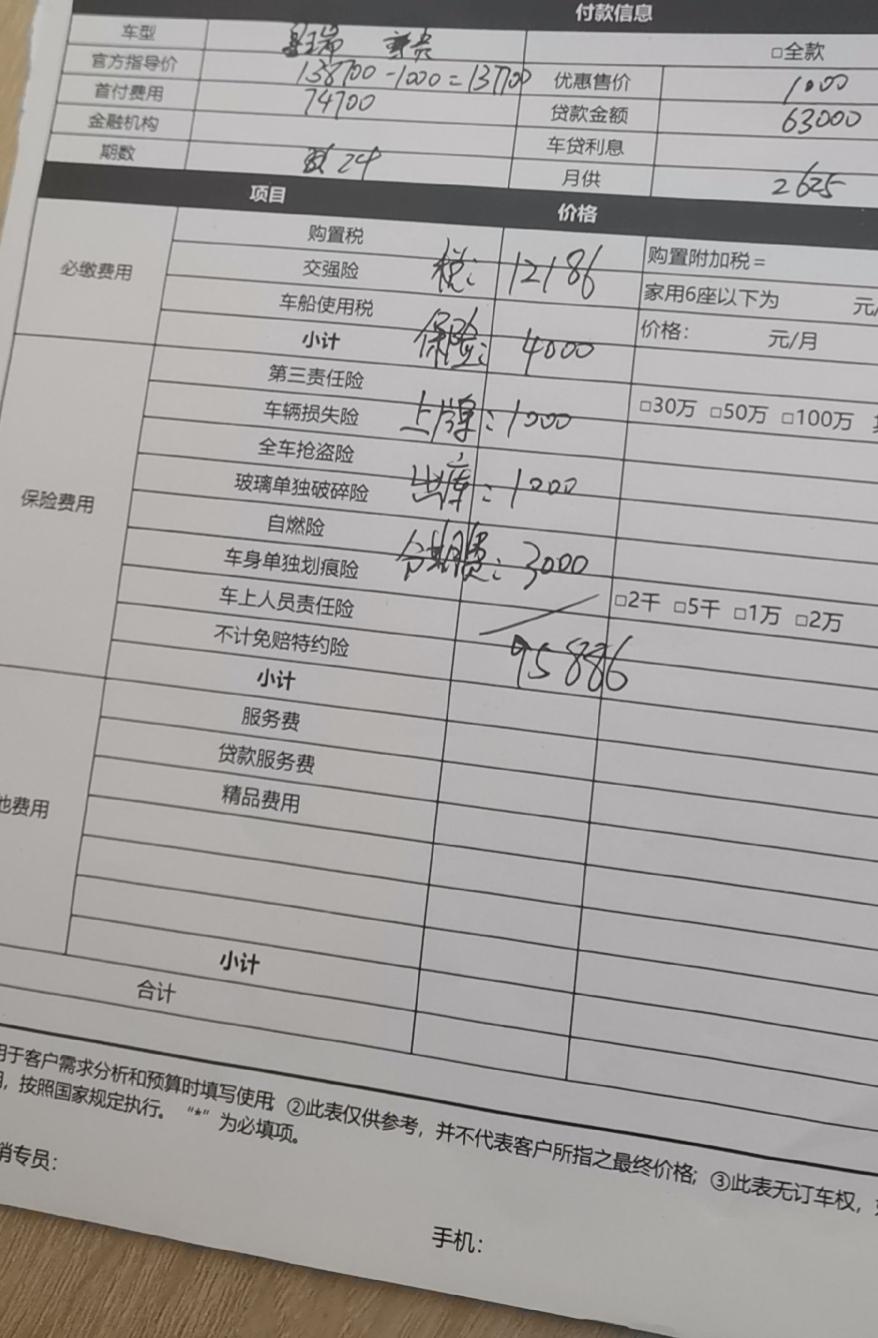 付款信息
车型 星瑞 尊贵 □全款
官方指导价 138700-1000=137700 优惠售价 1000
首付费用 74700 贷款金额 63000
金融机构 车贷利息
期数 24 月供 2625
项目 价格
购置税 购置附加税=
必缴费用 交强险 税: 12186 家用6座以下为 元/
车船使用税 价格: 元/月
小计 保险: 4000
第三责任险 □30万 □50万 □100万
车辆损失险 上牌: 1000
全车抢盗险
保险费用 玻璃单独破碎险 出库: 1000
自燃险
车身单独划痕险 分期费: 3000
车上人员责任险 □2千 □5千 □1万 □2万
不计免赔特约险 95886
小计
服务费
贷款服务费
他费用 精品费用
小计
合计
用于客户需求分析和预算时填写使用; ②此表仅供参考，并不代表客户所指之最终价格; ③此表无订车权，
，按照国家规定执行。“*”为必填项。
销专员:
手机: